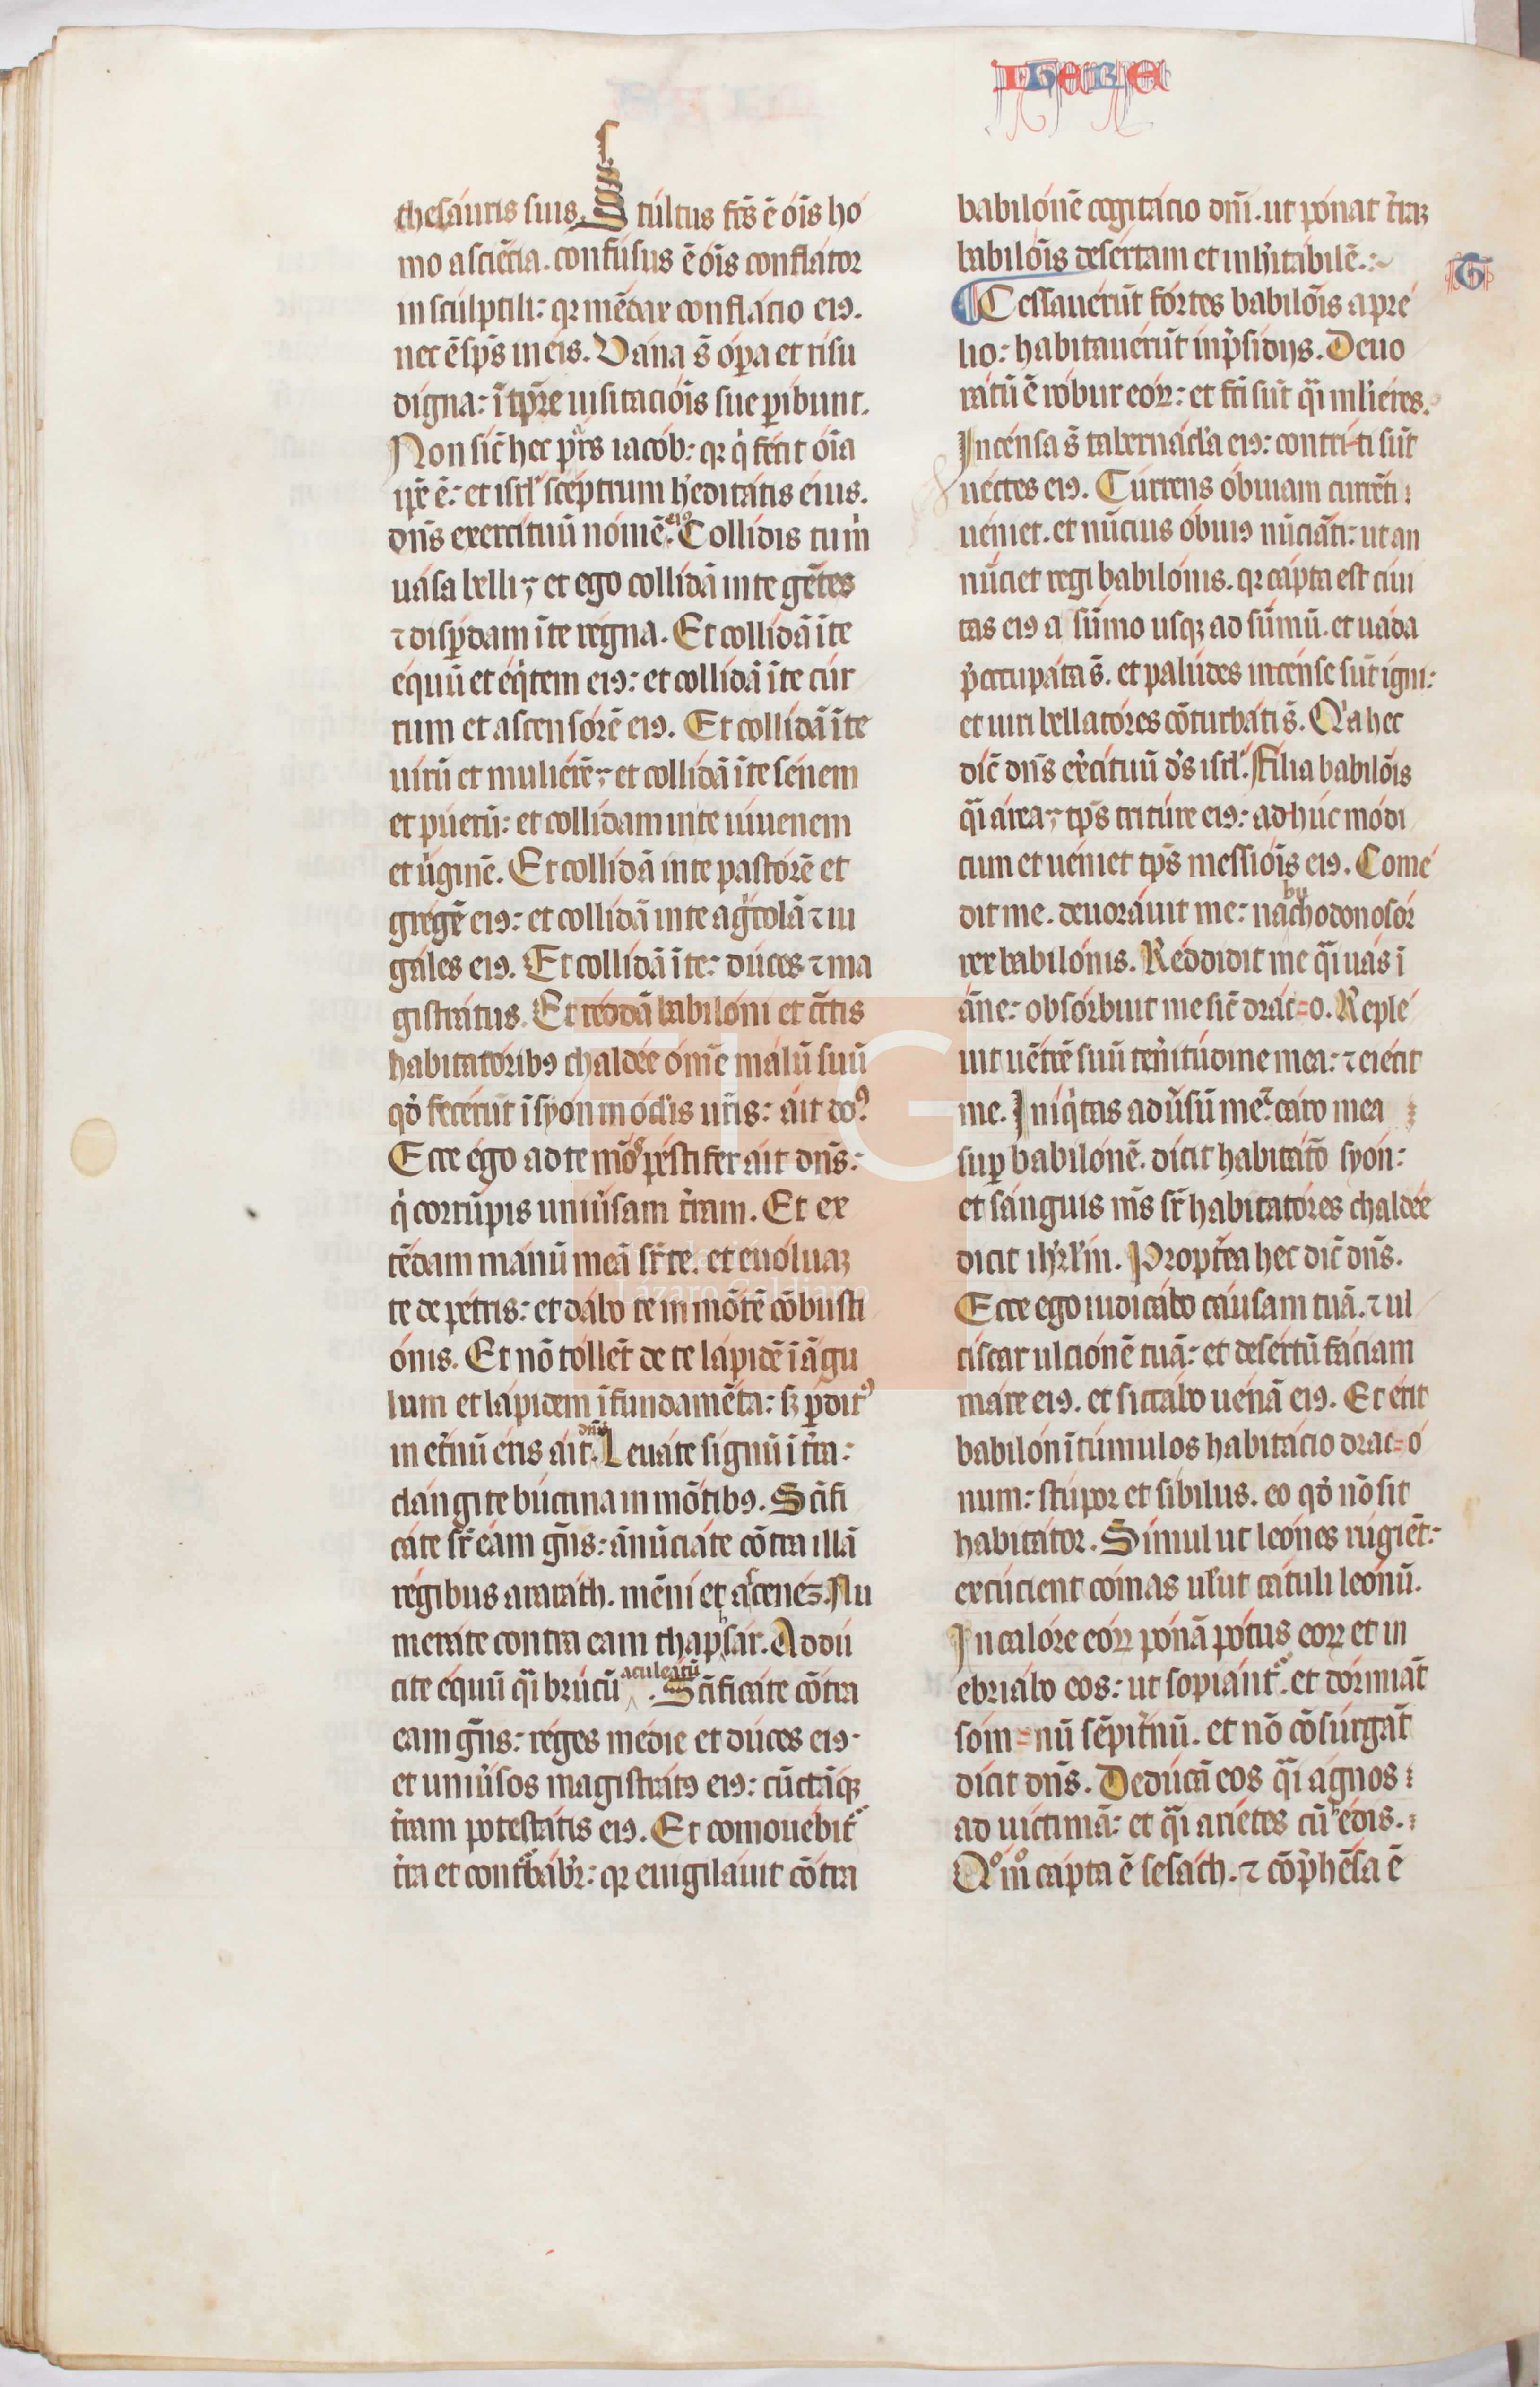 IHERE
thesáuris suis. Stúltus fc̄s ē óīs hó
mo a sciēcia. confúsus ē óīs conflátor
in scúlptili: qr mēdax conflácio eiꝰ.
nec ē sp̄s in eis. Vána s̄ óꝑa et risu
dígna: ī tp̄re uisitacióīs sue ꝑibunt.
Non sic̄ hec pars iacób: qr q̇ fécit óīa
ip̄e ē: et isrl̓ scéptrum h̓editátis éius.
dn̄s exercítuū nómē eiꝰ. Collídis tu m̓
uása belli; et ego collídā in te gētes
⁊ disꝑdam ī te régna. Et collídā ī te
équū et éq̇tem eiꝰ: et collídā ī te cúr
rum et ascensórē eiꝰ. Et collídā ī te
uírū et muliérē; et collídā ī te sénem
et púerū: et collídam in te iúuenem
et u̇ginē. Et collídā in te pastórē et
grégē eiꝰ: et collídā in te ag̓colā ⁊ iu
gáles eiꝰ. Et collídā ī te: dúces ⁊ ma
gistrátus. Et réddā babilóni et cc̄tis
habitatóribꝰ chaldée óm̄e málū suū
qd̓ fecérūt ī syón in ócl̓is ur̄is: áit doꝰ
Ecce égo ad te mōs péstifer ait dn̄s:
q̇ corrū́pis uniu̓sam t̓ram. Et ex
tēdam mánū meā sr̄ te. et euóluaꝫ
te de pétris: et dábo te in mōtē cōbusti
ónis. Et nō tóllēt de te lápidē ī āgu
lum et lápidem ī fundamēta: sꝫ ꝑditꝰ
in et̓nū éris áit dn̄s. Leuáte sígnū ī t̓ra:
clángite búccina in mōtibꝰ. Sc̄ifi
cáte sr̄ éam gn̄s: ānūciáte cōtra illā
régibus ararath. mēni et ascenéz. Nu
meráte contra eam thapsar. Addú
cite équū q̄i brúcū aculeátū. Sc̄ificáte cōtra
eam gn̄s: réges médie et dúces eiꝰ.
et uniu̓sos magistrátꝰ eiꝰ: cūctāqꝫ
t̓ram potestátis eiꝰ. Et comouébit̄
t̓ra et conťbábir̄: qr euigiláuit cōtra
babilónē cogitácio dn̄i. ut pónat t̓raꝫ
babilóīs desértam et inh̓itábilē.
Cessauérūt fórtes babilóīs a pré
lio: habitauérūt in p̓sídijs. Deuo
rátū ē róbur eoꝝ: et fc̄i sūt q̄i mlíeres.
Incénsa s̄ tabernácl̓a eiꝰ: contríti sūt
uéctes eiꝰ. Cúrrens óbuiam currēti
uéniet. et nū́cius óbuiꝰ nūciāti: ut an
nū́ciet regi babilónis. qr cápta est ciui
tas eiꝰ a súmo usqꝫ ad súmū. et uáda
p̓occupáta s̄. et palúdes incénse sūt ígni:
et uiri bellatóres cōturbáti s̄. Q̓a hec
dic̄ dn̄s ex̓cítuū ds̓ isrl̓. Fília babilóīs
q̄i área; tp̄s tritúre eiꝰ: adhúc módi
cum et uéniet tp̄s messióīs eiꝰ. Comé
dit me. deuoráuit me: nabuchodonosór
rex babilónis. Réddidit me q̄i uás ī
áne: obsórbuit me sic̄ drác=o. Replé
uit uētrē suū ten̓itúdine mea: ⁊ eiécit
me. Iníq̇tas adu̓sū me: ⁊ cáro mea
suꝑ babilónē. dícit habitatō syón:
et sánguis m̄s sr̄ habitatóres chaldée
dicit ih̓rl̓m. Propt̓ea hec dic̄ dn̄s.
Ecce ego iudicábo cáusam tuā. ⁊ ul
císcar ulciónē tuā: et desértū fáciam
máre eiꝰ. et siccábo uénā eiꝰ. Et érit
babilón ī túmulos habitácio drac=ó
num: stúpor et síbilus. eo qd̓ nō sit
habitátor. Símul ut leónes rúgiēt:
excúcient cómas ul̓ut cátuli leónū.
In calóre eóꝝ pónā pótus eoꝝ et in
ebriábo eos: ut sopiántur. et dórmiāt
sóm=nū sēpit̓nū. et nō cōsúrgāt
dícit dn̄s. Dedúcā eos q̄i ágnos
ad uíctimā: et q̄i aríetes cū h̓edis.
Qºm̊ cápta ē sesách. ⁊ cōp̓hēsa ē